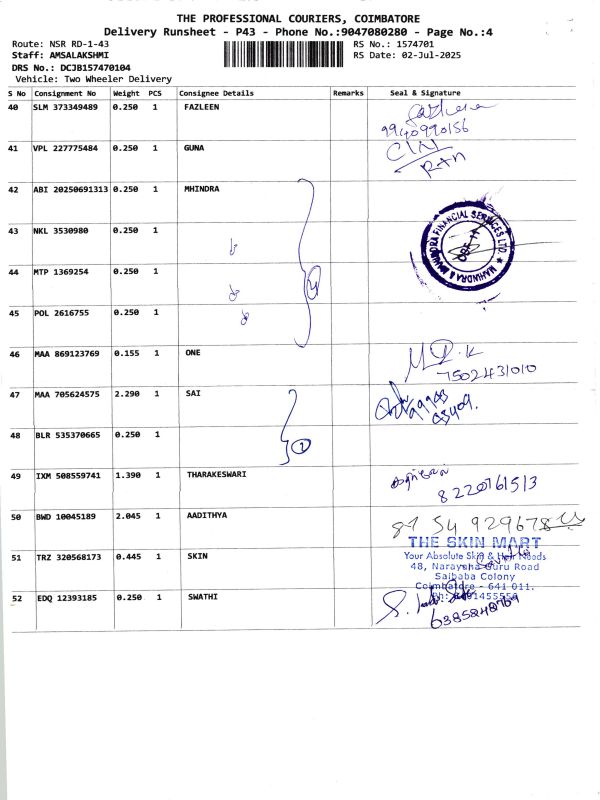 THE PROFESSIONAL COURIERS, COIMBATORE
Delivery Runsheet - P43 - Phone No.:9047080280 - Page No.:4
Route: NSR RD-1-43
RS No.: 1574701
Staff: AMSALAKSHMI
RS Date: 02-Jul-2025
DRS No.: DCJB157470104
Vehicle: Two Wheeler Delivery
S No Consignment No Weight PCS Consignee Details Remarks Seal & Signature
40 SLM 373349489 0.250 1 FAZLEEN
9940990156
41 VPL 227775484 0.250 1 GUNA
42 ABI 20250691313 0.250 1 MHINDRA
MAHINDRA & MAHINDRA FINANCIAL SERVICES LTD.
43 NKL 3530980 0.250 1
44 MTP 1369254 0.250 1
45 POL 2616755 0.250 1
46 MAA 869123769 0.155 1 ONE
7502431010
47 MAA 705624575 2.290 1 SAI
48 BLR 535370665 0.250 1
49 IXM 508559741 1.390 1 THARAKESWARI
8220761513
50 BWD 10045189 2.045 1 AADITHYA
THE SKIN MART
51 TRZ 320568173 0.445 1 SKIN
Your Absolute Skin & Hair Needs
48, Narayana Guru Road
Saibaba Colony
Coimbatore - 641 011.
52 EDQ 12393185 0.250 1 SWATHI